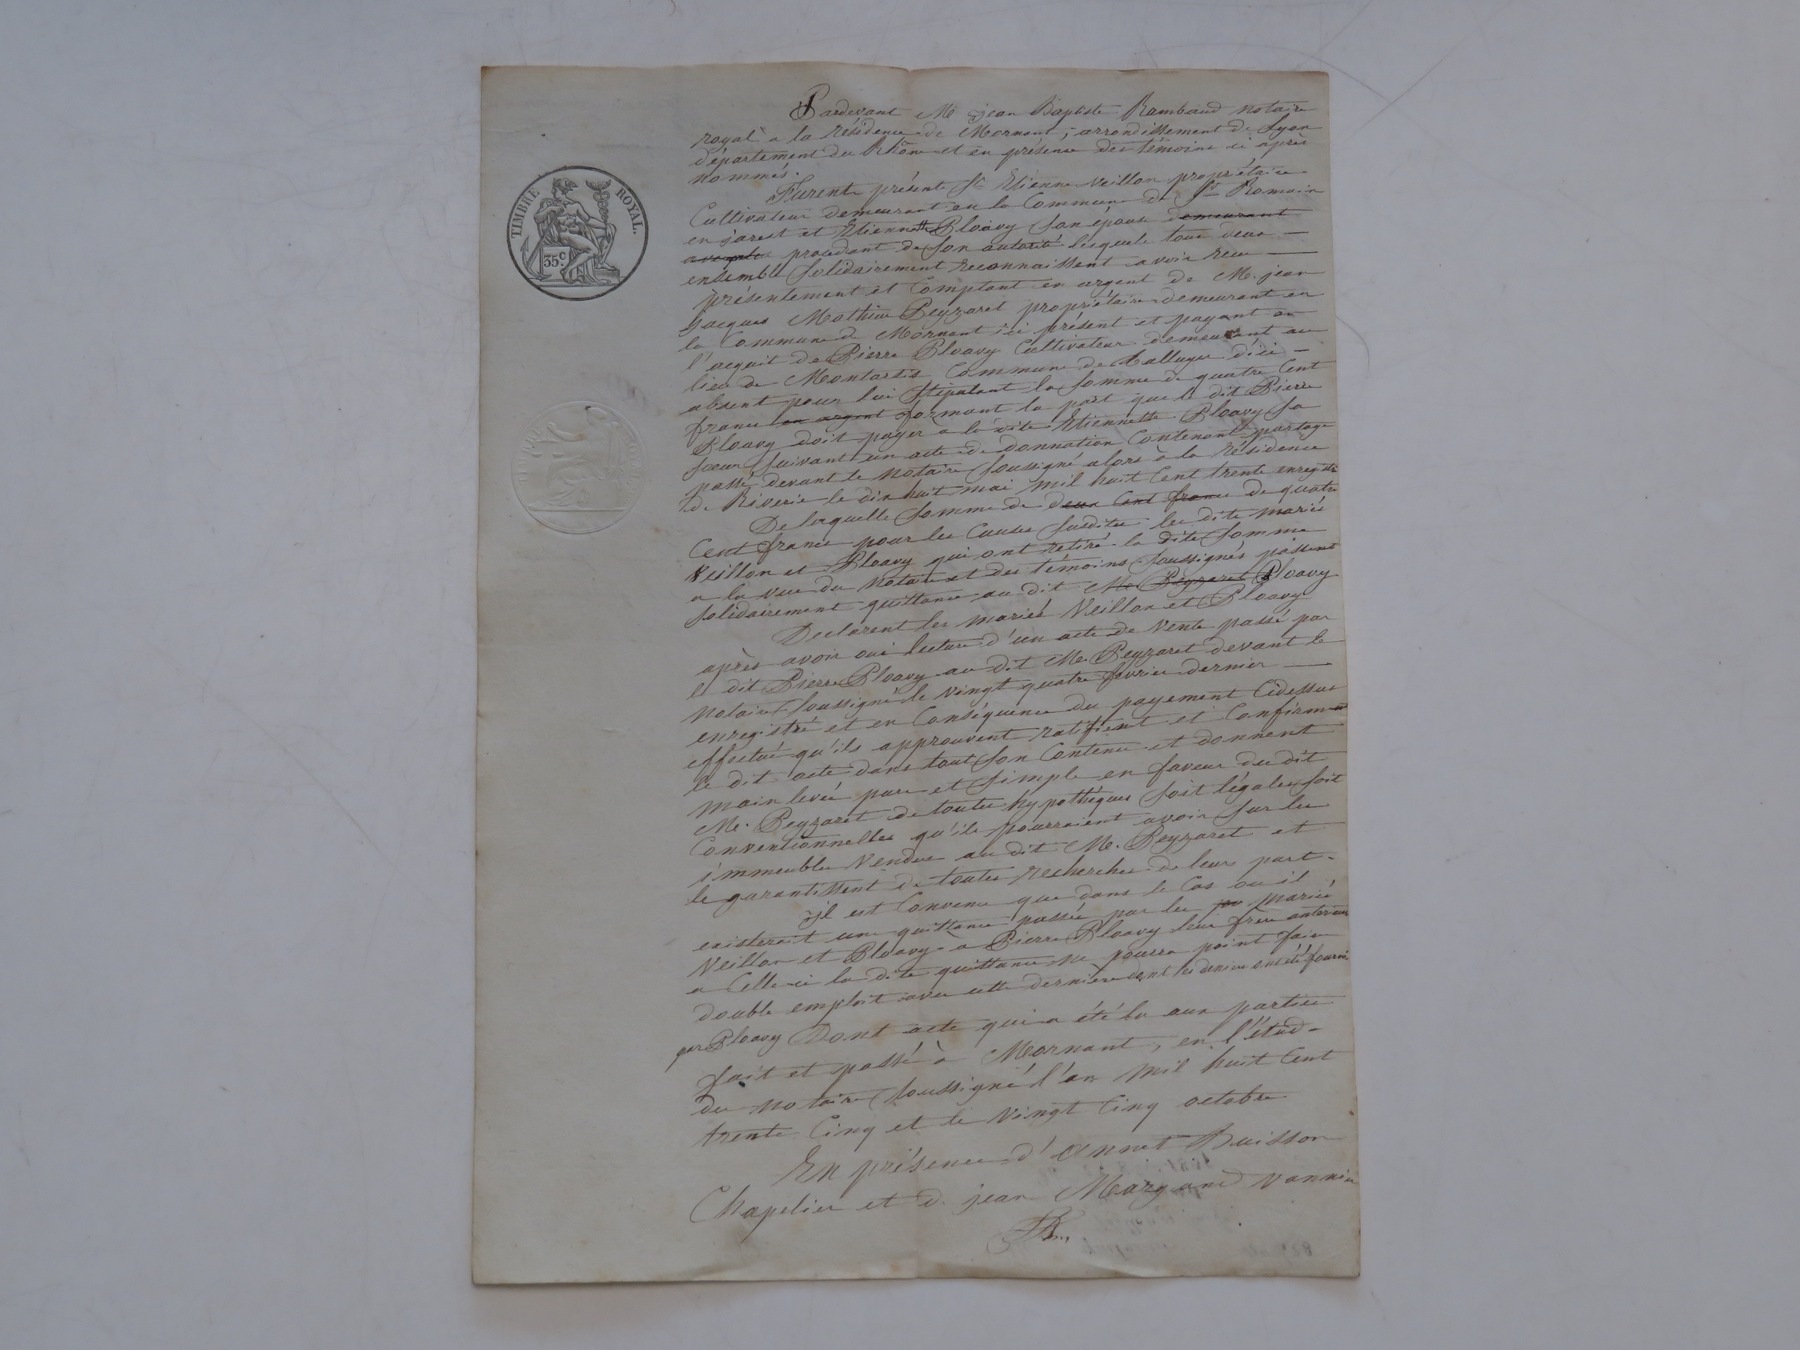 TIMBRE ROYAL.
35c.
Pardevant Me jean Baptiste Rambaud notaire
royal à la résidence de Mornant, arrondissement de Lyon
département du Rhône et en présence des témoins ci après
nommés.
Furent présents Sr Etienne Veillon propriétaire
Cultivateur demeurant en la Commune de St Romain
en jarest et Etiennette Ploavy son épouse demeurant
avec procédant de son autorité lesquels tous deux
ensemble Solidairement reconnaissent avoir reçu
présentement et Comptant en argent de M. jean
jacques Mathieu Peyzaret propriétaire demeurant en
la Commune de Mornant ici présent et payant en
l'acquit de Pierre Ploavy Cultivateur demeurant au
lieu de Montartis Commune deТалluyer d'ici
absent pour lui Stipulant la Somme de quatre Cent
francs en argent formant la part que le dit Pierre
Ploavy doit payer à la dite Etiennette Ploavy Sa
Sœur Suivant un acte de donnation Contenant partage
passé devant le notaire Soussigné alors à la résidence
de Riverie le dix huit mai mil huit Cent trente enregistré
De laquelle Somme de deux Cent francs de quatre
Cent francs pour les Causes Susdites les dits mariés
Veillon et Ploavy qui ont retiré la dite Somme
a la vue du notaire et des témoins Soussignés passent
Solidairement quittance au dit Me Peyzaret Ploavy
Declarent les mariés Veillon et Ploavy
après avoir oui lecture d'un acte de Vente passé par
le dit Pierre Ploavy au dit Me. Peyzaret devant le
notaire Soussigné le Vingt quatre fevrier dernier
enregistré et en Conséquence du payement Cidessus
effectué qu'ils approuvent ratifient et Confirment
le dit acte dans tout Son Contenu et donnent
main levée pure et Simple en faveur du dit
Me. Peyzaret de toutes hypothèques Soit légales Soit
Conventionnelles qu'ils pourraient avoir Sur les
immeubles Vendus au dit Me. Peyzaret et
le garantissent de toutes recherches de leur part.
il est Convenu que dans le Cas ou il
existerait une quittance passée par les mariés
Veillon et Ploavy à Pierre Ploavy leur frère anterieure
a Celle-ci la dite quittance ne pourra point faire
double emploit avec cette dernière dont les deniers ont été fournis
par Ploavy Dont acte qui a été lu aux parties
fait et passé à Mornant, en l'étude
du notaire Soussigné l'an mil huit Cent
trente Cinq et le Vingt Cinq octobre
En présence d'annet Buisson
Chapelier et d. jean Margand vannier